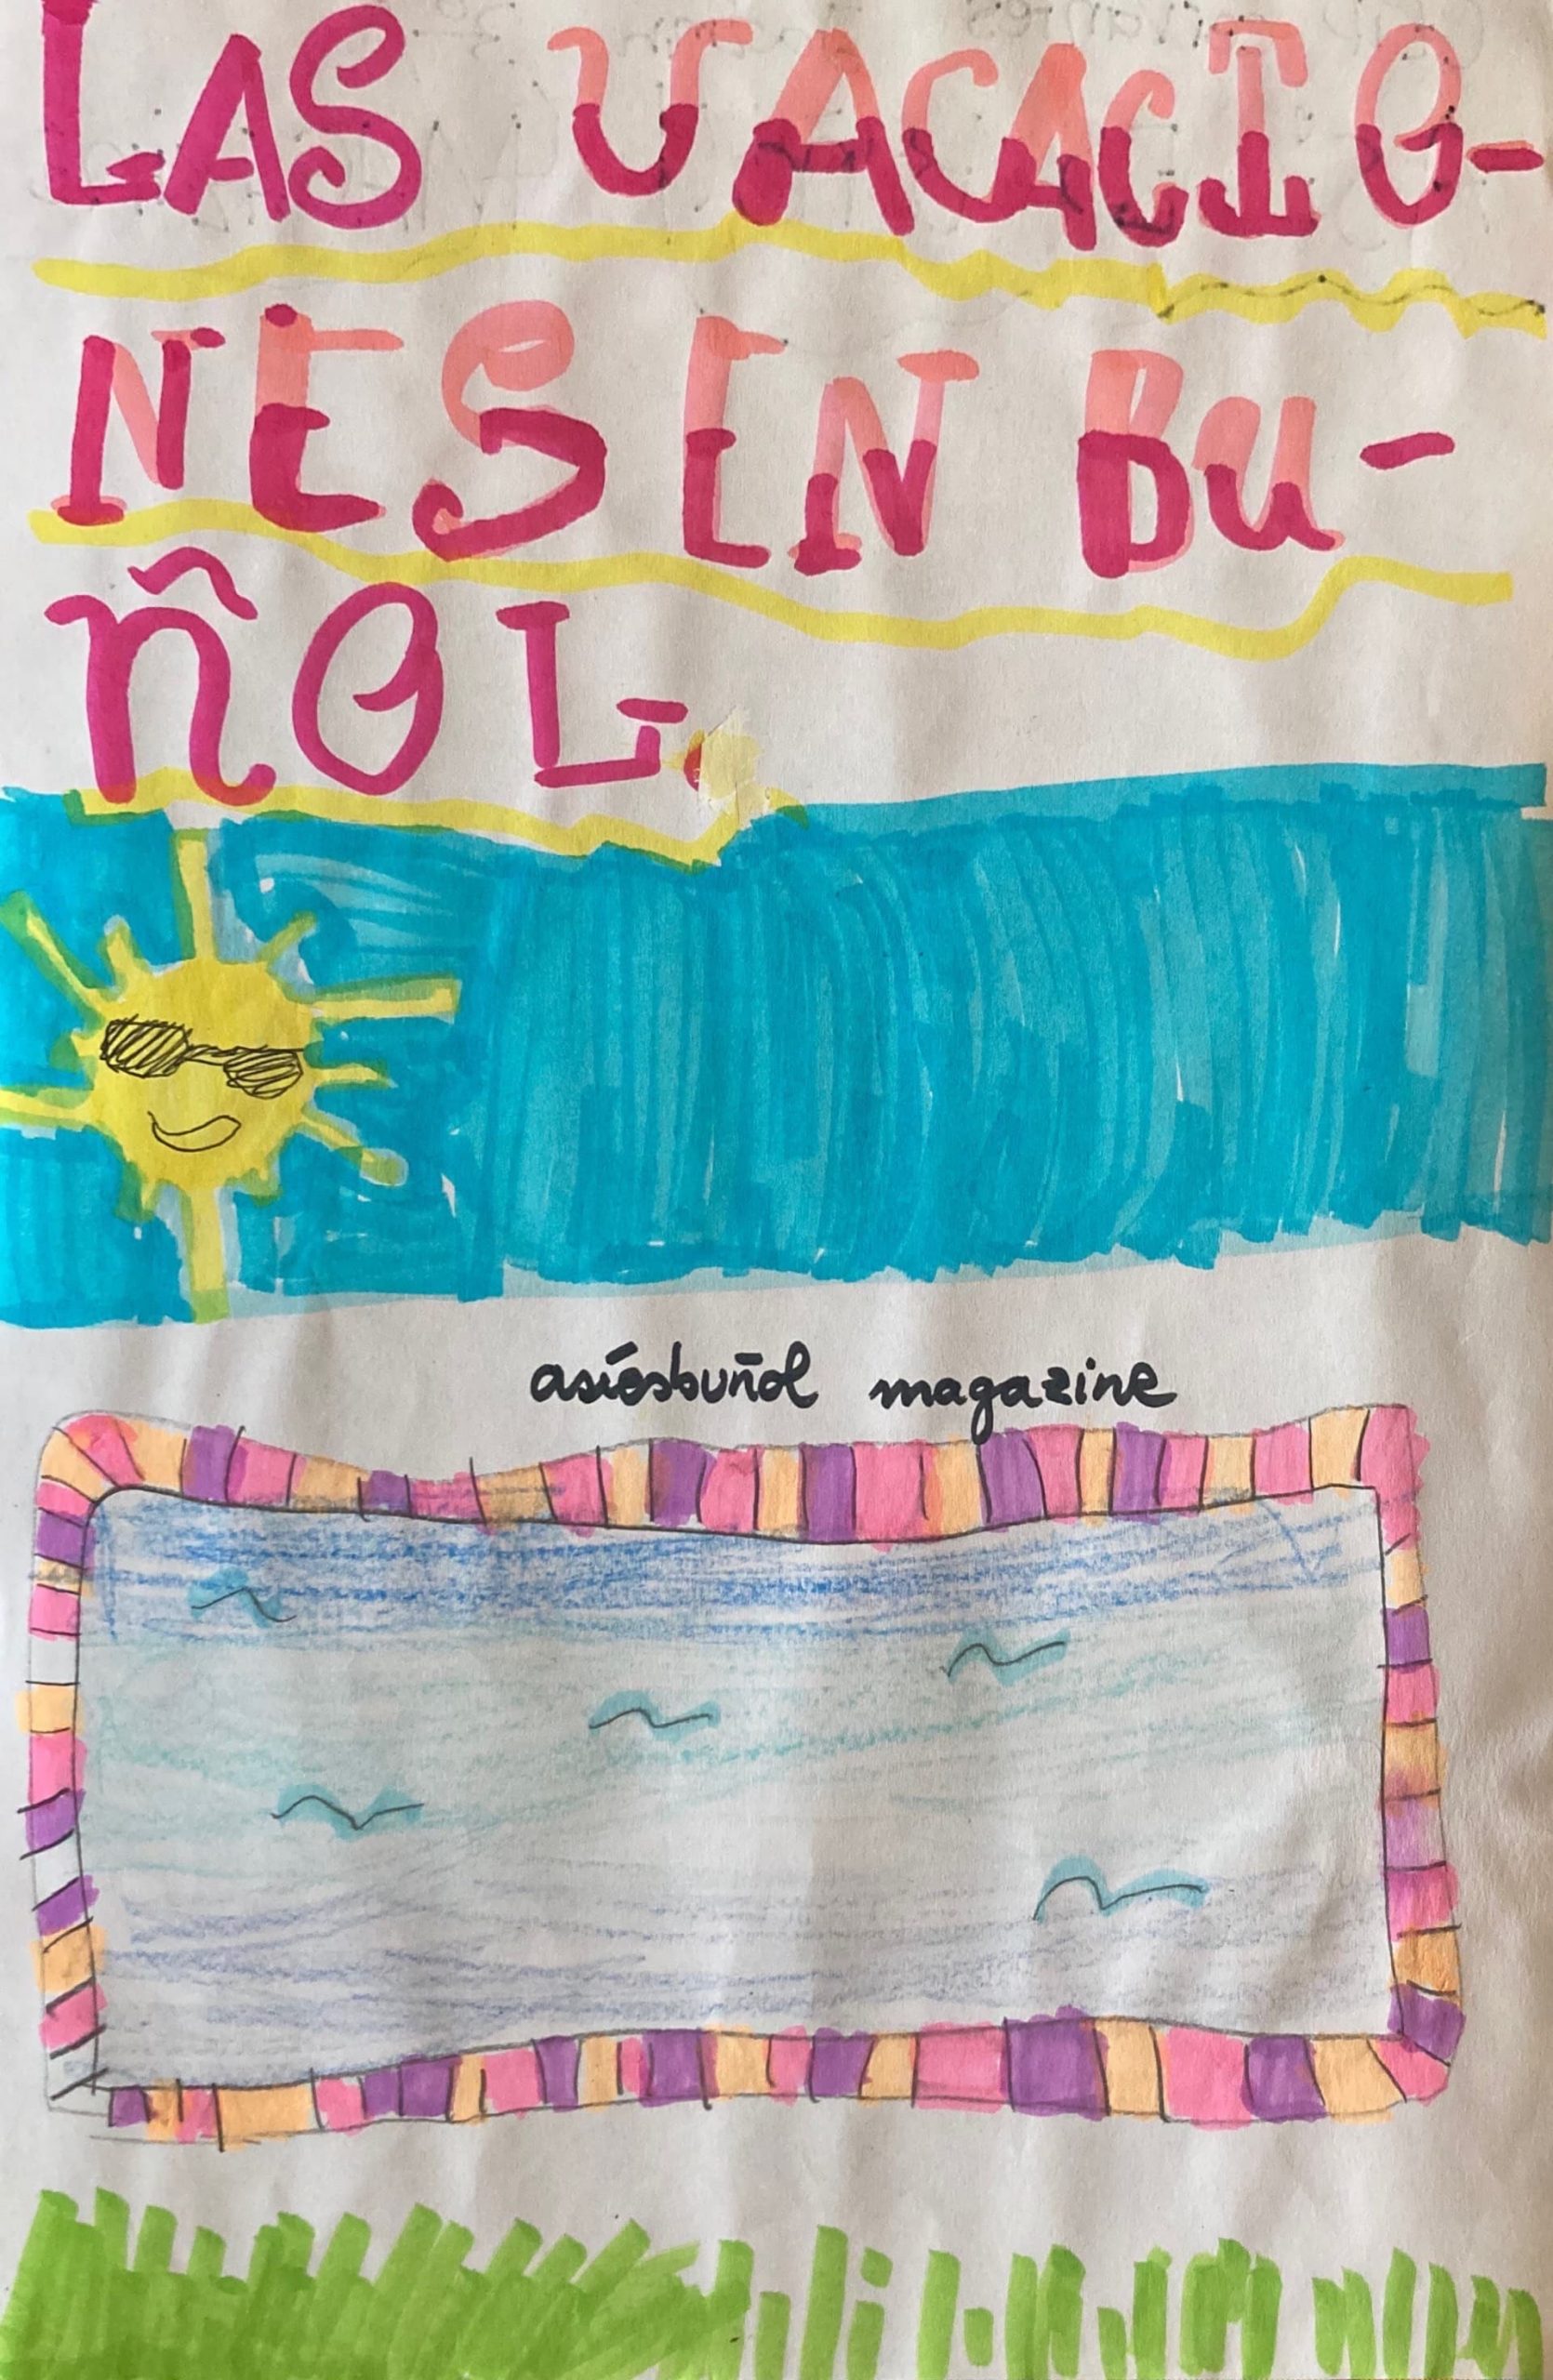 LAS VACACIO-
NES EN BU-
ÑOL.
asíesbuñol magazine